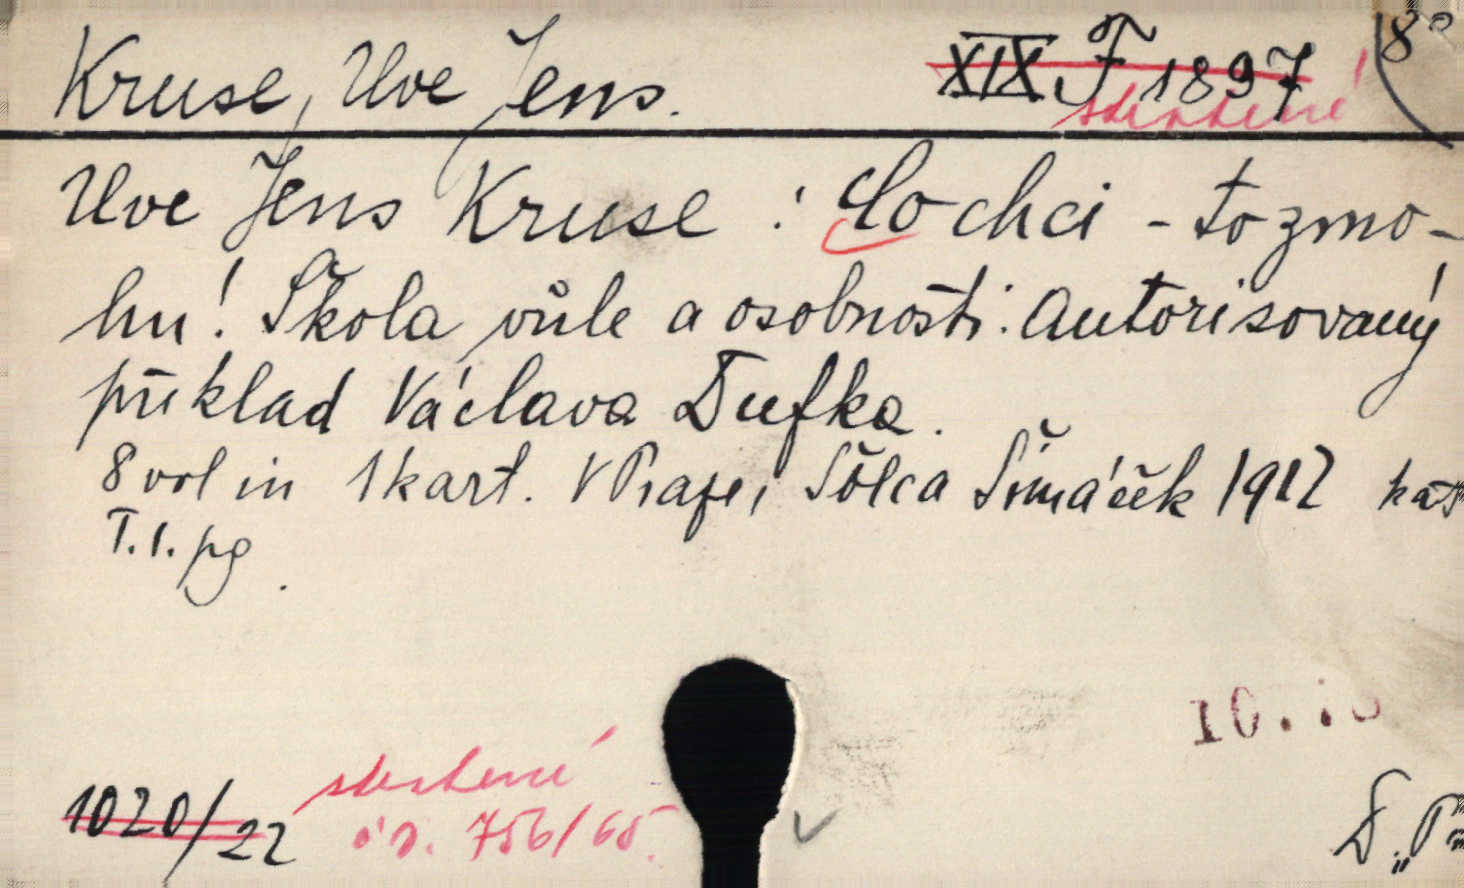 Kruse, Uve Jens. XIX F 1897 8°
škrtené
Uve Jens Kruse : Co chci - to zmo-
hu! Škola vůle a osobnosti. Autorisovaný
příklad Václava Dufka.
8 vol in 1 kart. V Praze, Šolc a Šimáček 1912
T.1. pg.
10.
škrtené
1020/22 č. 756/65.